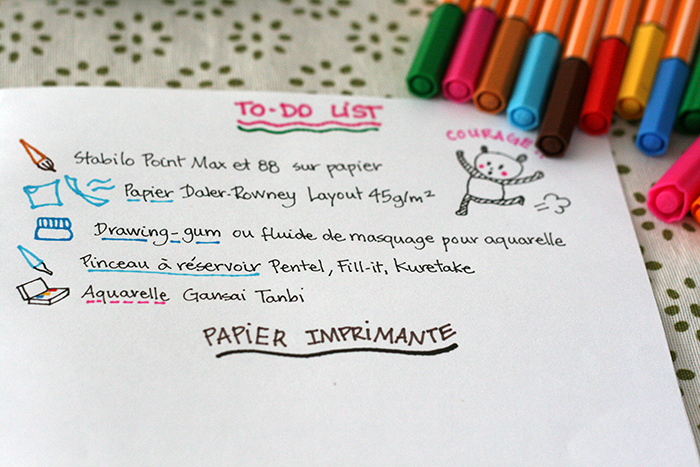 TO-DO LIST
COURAGE!!
Stabilo Point Max et 88 sur papier
Papier Daler-Rowney Layout 45g/m²
Drawing-gum ou fluide de masquage pour aquarelle
Pinceau à réservoir Pentel, Fill-it, Kuretake
Aquarelle Gansai Tanbi
PAPIER IMPRIMANTE